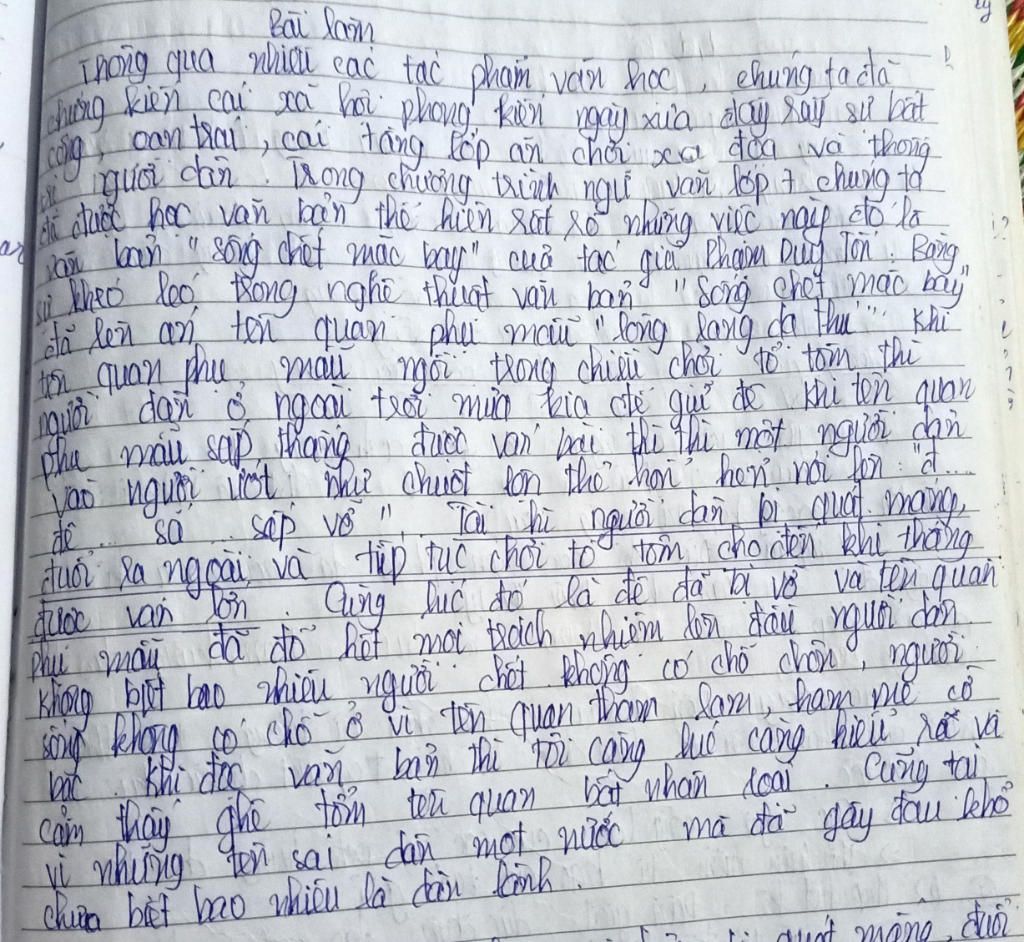 Bài làm
Thông qua nhiều các tác phẩm văn học, chúng ta đã
chứng kiến cái xã hội phong kiến ngày xưa đầy rẫy sự bất
công, oan trái, cái tầng lớp ăn chơi xa đọa và thống
trị người dân. Trong chương trình ngữ văn lớp 7 chúng ta
đã được học văn bản thể hiện rất rõ những việc này đó là
văn bản "sống chết mặc bay" của tác giả Phạm Duy Tốn. Bằng
sự khéo léo trong nghệ thuật văn bản "Sống chết mặc bay"
đã lên án tên quan phụ mẫu "lòng lang dạ thú". Khi
tên quan phụ mẫu ngồi trong chiếu chơi tổ tôm thì
người dân ở ngoài trời mưa kia để giữ đê khi tên quan
phụ mẫu sắp thắng được ván bài thì thì một người dân
vào người ướt như chuột lột thở hổn hển nói lớn: "đ...
đê... sắ... sắp vỡ".
người dân bị quát mắng,
đuổi ra ngoài và tiếp tục chơi tổ tôm cho đến khi thắng
được ván lớn. Cùng lúc đó là đê đã bị vỡ và tên quan
phụ mẫu đã đổ hết mọi trách nhiệm lên đầu người dân.
Không biết bao nhiêu người chết không có chỗ chôn, người
sống không có chỗ ở vì tên quan tham lam, ham mê cờ
bạc. Khi đọc văn bản thì tôi càng lúc càng hiểu rõ và
cảm thấy ghê tởm tên quan bất nhân. Cũng tại
vì những tên sai dân một nước mà đã gây đau khổ
chưa biết bao nhiêu là dân lành.
quát mắng, đuổi